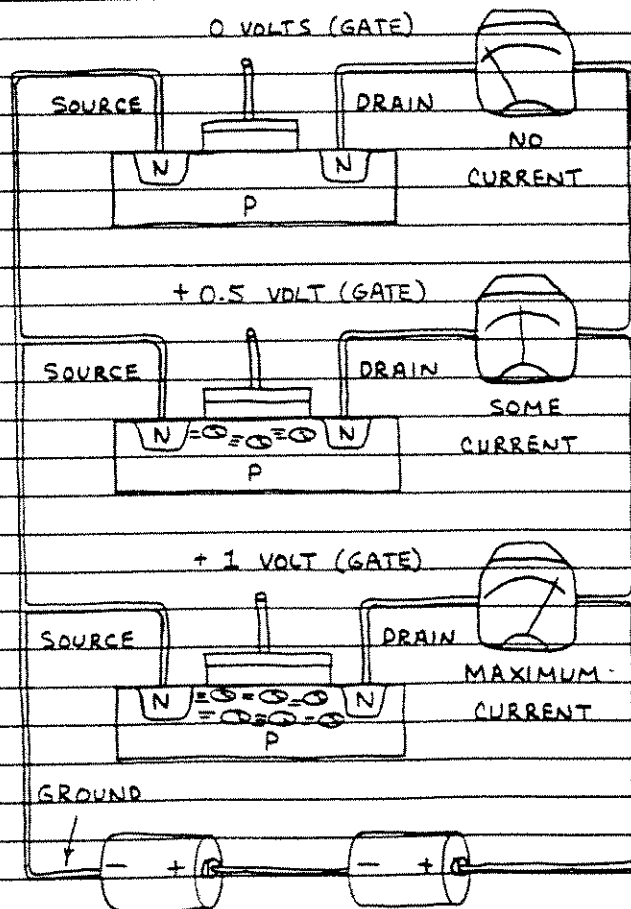 0 VOLTS (GATE)
SOURCE
DRAIN
N
N
P
NO
CURRENT
+ 0.5 VOLT (GATE)
SOURCE
DRAIN
N
N
P
SOME
CURRENT
+ 1 VOLT (GATE)
SOURCE
DRAIN
N
N
P
MAXIMUM
CURRENT
GROUND
- +
- +